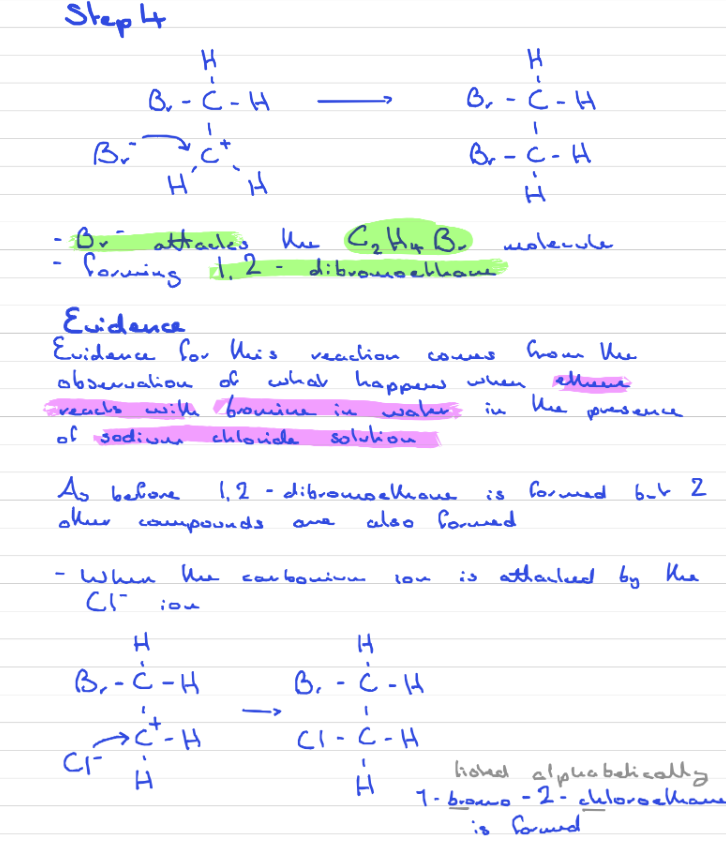 Step 4
H
Br - C - H
Br⁻ C⁺
H H
H
Br - C - H
Br - C - H
H
- Br⁻ attacks the C₂H₄Br molecule
- forming 1,2 - dibromoethane
Evidence
Evidence for this reaction comes from the
observation of what happens when ethene
reacts with bromine in water in the presence
of sodium chloride solution
As before 1,2 - dibromoethane is formed but 2
other compounds are also formed
- When the carbonium ion is attacked by the
Cl⁻ ion
H
Br - C - H
C⁺ - H
Cl⁻ H
H
Br - C - H
Cl - C - H
H
listed alphabetically
1 - bromo - 2 - chloroethane
is formed